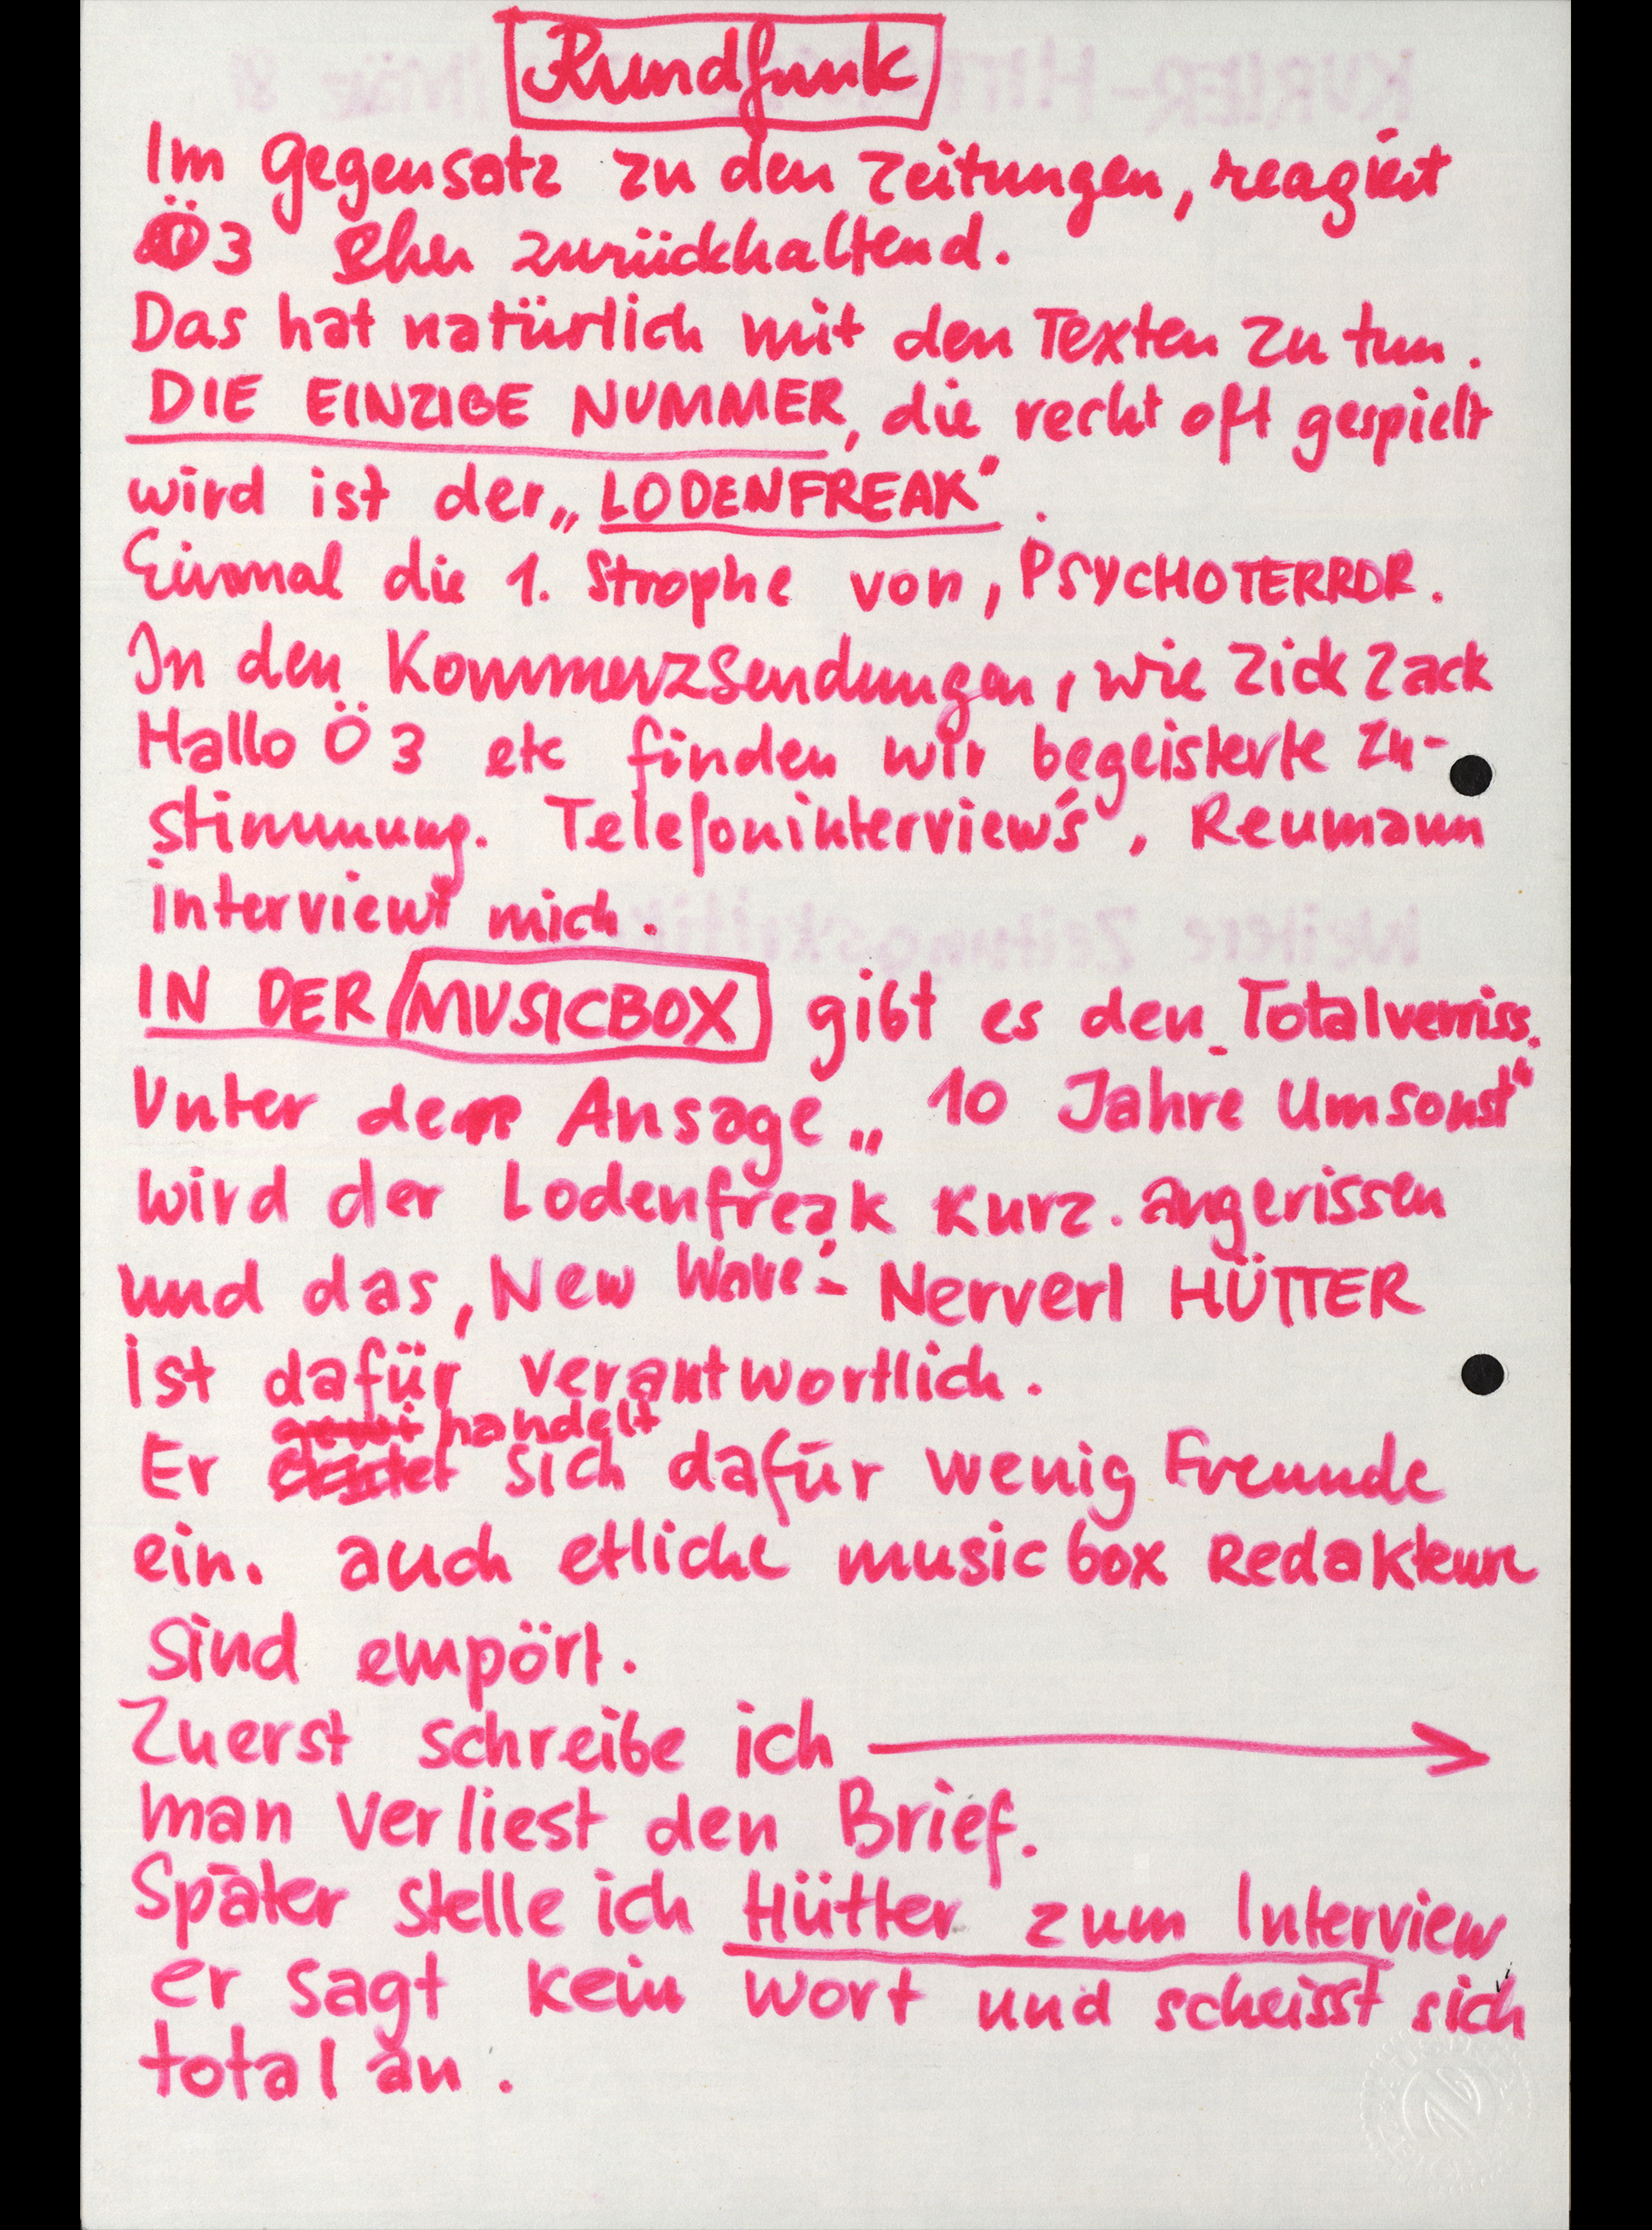 Rundfunk
Im Gegensatz zu den Zeitungen, reagiert
Ö3 eher zurückhaltend.
Das hat natürlich mit den Texten zu tun.
DIE EINZIGE NUMMER, die recht oft gespielt
wird ist der „LODENFREAK".
Einmal die 1. Strophe von, PSYCHOTERROR.
In den Kommerzsendungen, wie Zick Zack
Hallo Ö3 etc finden wir begeisterte Zu-
stimmung. Telefoninterview's, Reumann
interviewt mich.
IN DER MUSICBOX gibt es den Totalverriss.
Unter dem Ansage „10 Jahre Umsonst"
wird der Lodenfreak kurz. angerissen
und das, New Wave'- Nerverl HÜTTER
ist dafür verantwortlich.
handelt
Er sich dafür wenig Freunde
ein. auch etliche musicbox Redakteure
sind empört.
Zuerst schreibe ich →
man verliest den Brief.
Später stelle ich Hütter zum Interview
er sagt kein Wort und scheisst sich
total an.